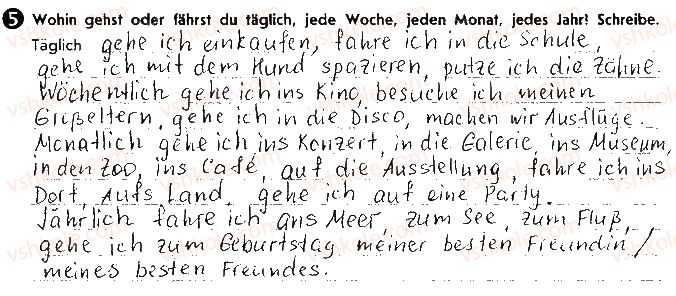 5 Wohin gehst oder fährst du täglich, jede Woche, jeden Monat, jedes Jahr? Schreibe.
Täglich gehe ich einkaufen, fahre ich in die Schule,
gehe ich mit dem Hund spazieren, putze ich die Zähne.
Wöchentlich gehe ich ins Kino, besuche ich meinen
Großeltern, gehe ich in die Disco, machen wir Ausflüge.
Monatlich gehe ich ins Konzert, in die Galerie, ins Museum,
in den Zoo, ins Café, auf die Ausstellung, fahre ich ins
Dorf, aufs Land, gehe ich auf eine Party.
Jährlich fahre ich ans Meer, zum See, zum Fluß,
gehe ich zum Geburtstag meiner besten Freundin/
meines besten Freundes.